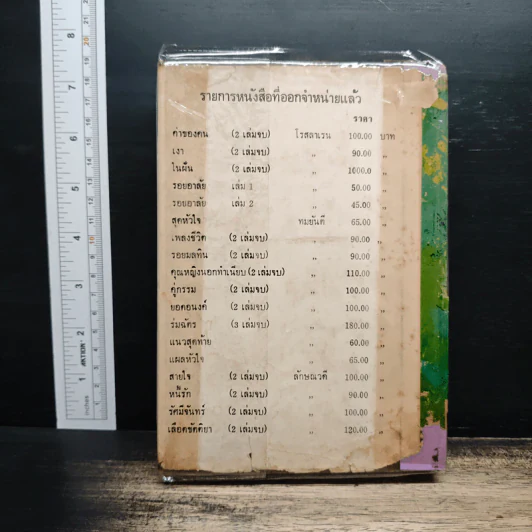 รายการหนังสือที่ออกจำหน่ายแล้ว
ราคา
ค่าของคน (2 เล่มจบ) โรสลาเรน 100.00 บาท
เงา (2 เล่มจบ) ,, 90.00 ,,
ในฝัน (2 เล่มจบ) ,, 1000.0 ,,
รอยอาลัย เล่ม 1 ,, 50.00 ,,
รอยอาลัย เล่ม 2 ,, 45.00 ,,
สุดหัวใจ ทมยันตี 65.00 ,,
เพลงชีวิต (2 เล่มจบ) ,, 90.00 ,,
รอยมลทิน (2 เล่มจบ) ,, 90.00 ,,
คุณหญิงนอกทำเนียบ (2 เล่มจบ) ,, 110.00 ,,
คู่กรรม (2 เล่มจบ) ,, 100.00 ,,
ยอดอนงค์ (2 เล่มจบ) ,, 100.00 ,,
ร่มฉัตร (3 เล่มจบ) ,, 180.00 ,,
แนวสุดท้าย ,, 60.00 ,,
แผลหัวใจ ,, 65.00 ,,
สายใจ (2 เล่มจบ) ลักษณวดี 100.00 ,,
หนี้รัก (2 เล่มจบ) ,, 90.00 ,,
รัศมีจันทร์ (2 เล่มจบ) ,, 100.00 ,,
เลือดขัตติยา (2 เล่มจบ) ,, 120.00 ,,
8
7
6
5
4
3
2
1